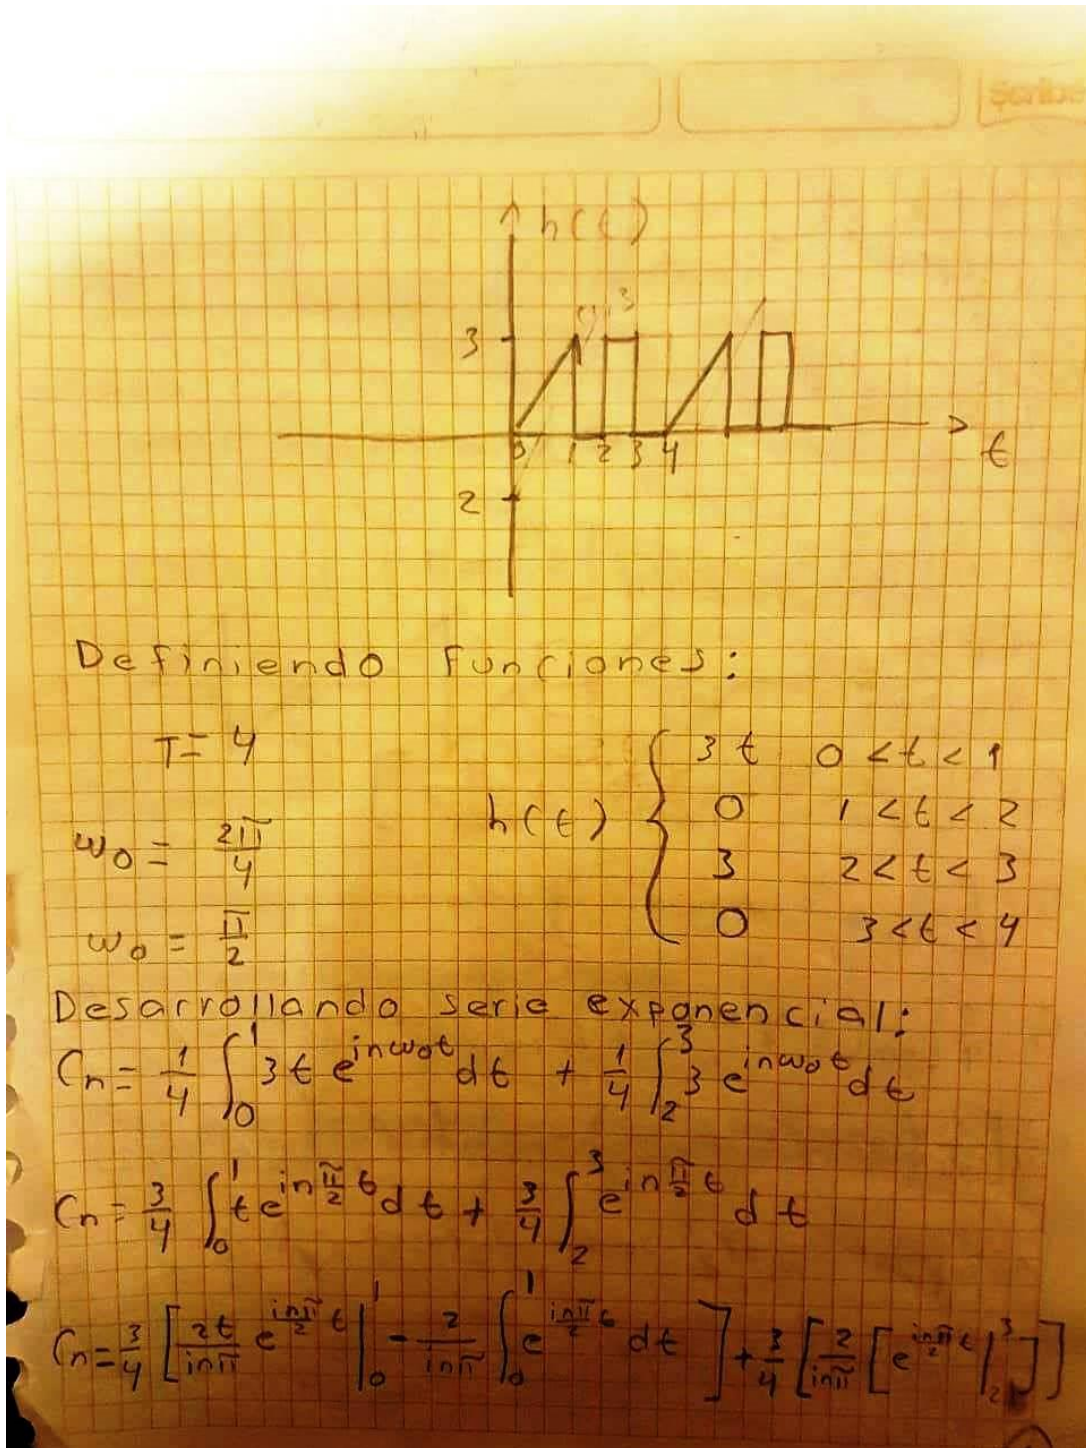 Scribe
h(t)
3
3
0 1 2 3 4
t
2
Definiendo funciones:
T = 4
ω₀ = 2π/4
ω₀ = π/2
h(t) { 3t 0 < t < 1
0 1 < t < 2
3 2 < t < 3
0 3 < t < 4
Desarrollando serie exponencial:
Cn = 1/4 ∫₀¹ 3t e^{inω₀t} dt + 1/4 ∫₂³ 3 e^{inω₀t} dt
Cn = 3/4 ∫₀¹ t e^{in π/2 t} dt + 3/4 ∫₂³ e^{in π/2 t} dt
Cn = 3/4 [ 2t/inπ e^{inπ/2 t} |₀¹ - 2/inπ ∫₀¹ e^{inπ/2 t} dt ] + 3/4 [ 2/inπ [ e^{inπ/2 t} |₂³ ] ]